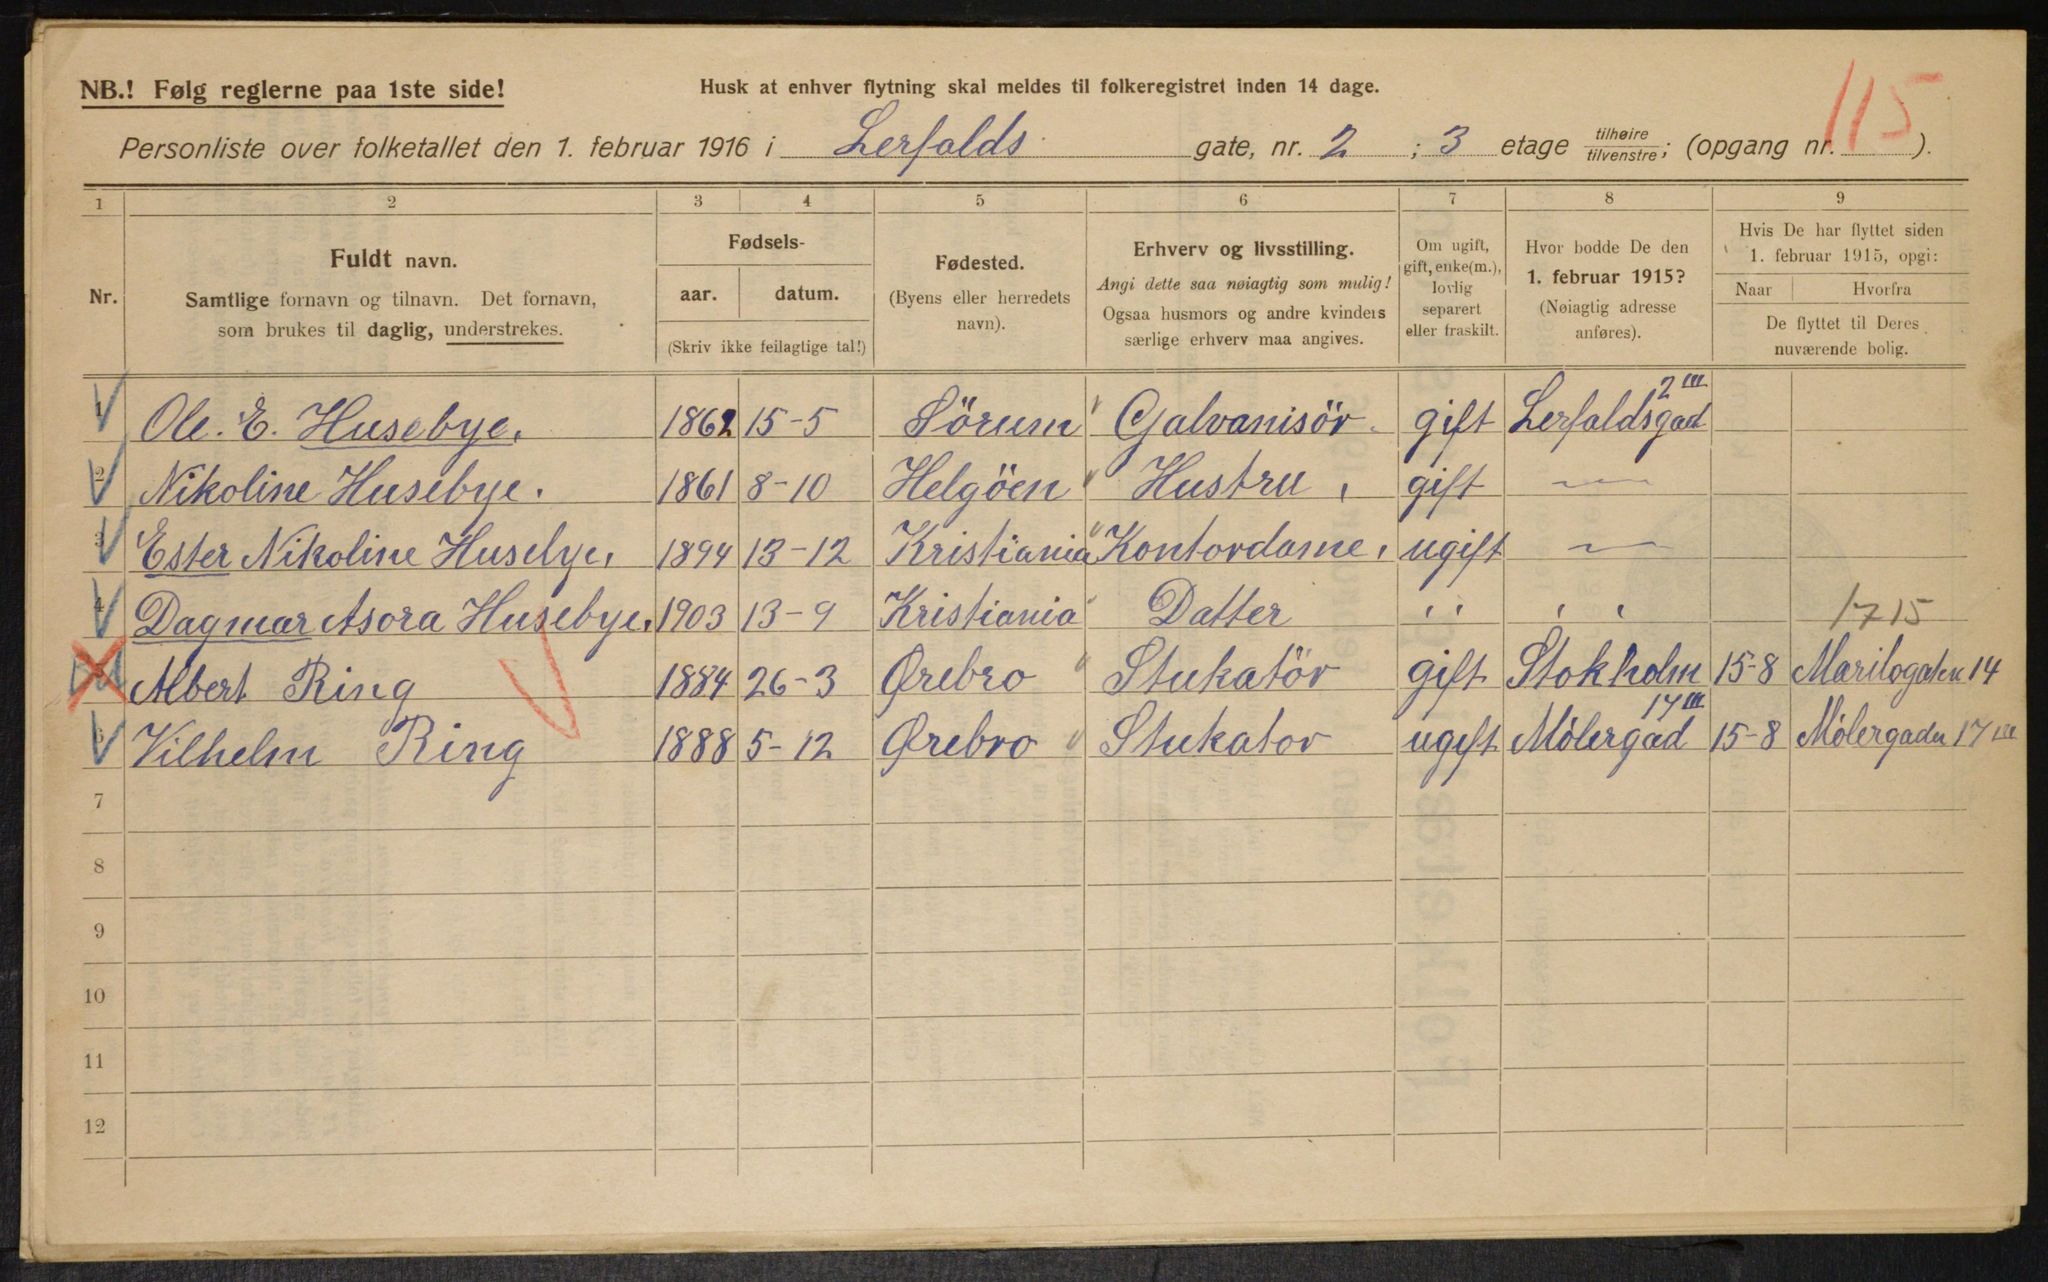 NB.! Følg reglerne paa 1ste side!
Husk at enhver flytning skal meldes til folkeregistret inden 14 dage.
115
Personliste over folketallet den 1. februar 1916 i Lerfalds gate, nr. 2 ; 3 etage tilhøire tilvenstre; (opgang nr. ).
1 2 3 4 5 6 7 8 9
Nr.
Fuldt navn.
Samtlige fornavn og tilnavn. Det fornavn,
som brukes til daglig, understrekes.
Fødsels-
aar. datum.
(Skriv ikke feilagtige tal!)
Fødested.
(Byens eller herredets
navn).
Erhverv og livsstilling.
Angi dette saa nøiagtig som mulig!
Ogsaa husmors og andre kvinders
særlige erhverv maa angives.
Om ugift,
gift, enke(m.),
lovlig
separert
eller fraskilt.
Hvor bodde De den
1. februar 1915?
(Nøiagtig adresse
anføres).
Hvis De har flyttet siden
1. februar 1915, opgi:
Naar Hvorfra
De flyttet til Deres
nuværende bolig.
1 Ole. E. Husebye. 1862 15-5 Sörum Galvanisör gift Lerfaldsgad 2 III
2 Nikoline Husebye. 1861 8-10 Helgöen Hustru, gift —
3 Ester Nikoline Husebye, 1894 13-12 Kristiania Kontordame, ugift —
4 Dagmar Asora Husebye. 1903 13-9 Kristiania Datter " "
1715
5 Albert Ring 1884 26-3 Ørebro Stukatör gift Stokholm 15-8 Marilogaten 14
6 Vilhelm Ring 1888 5-12 Ørebro Stukator ugift Mölergad 17 III 15-8 Mölergaden 17 III
7
8
9
10
11
12